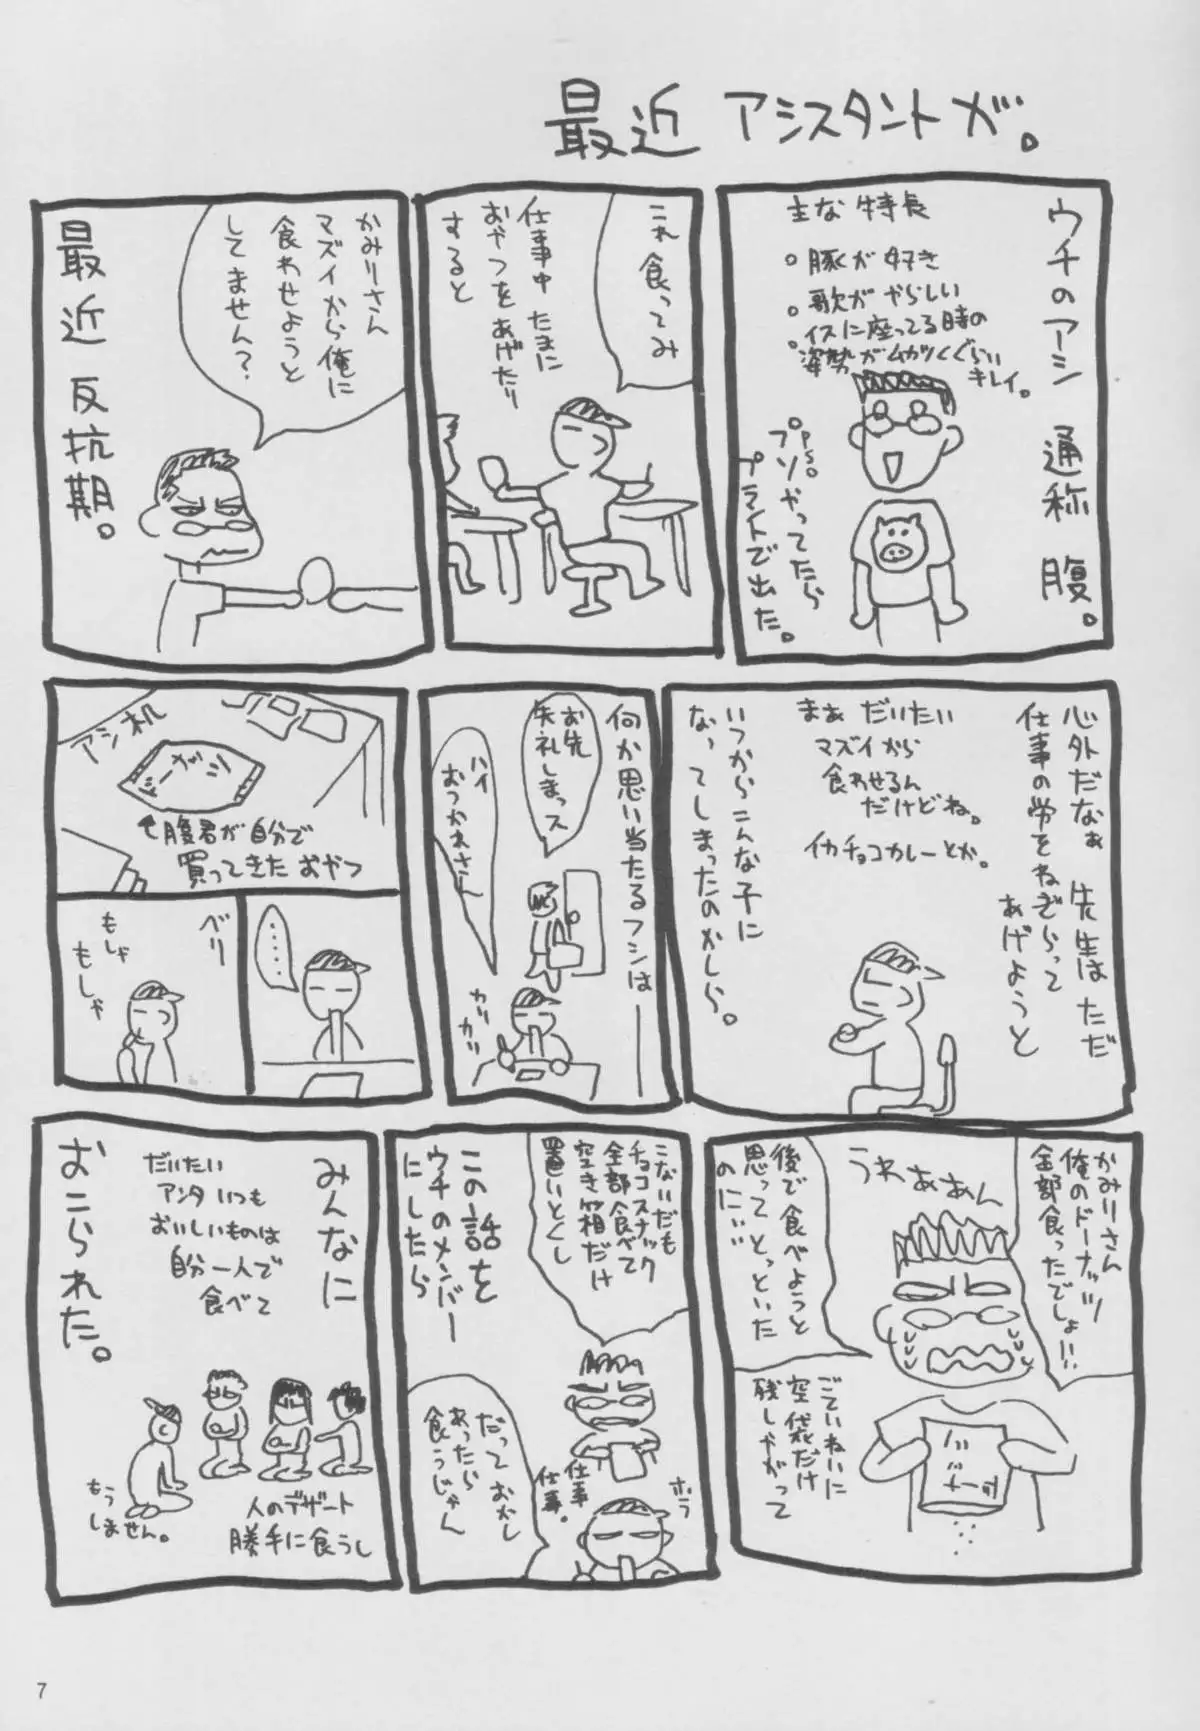 最近 アシスタントが。
ウチのアシ 通称 腹。
主な特長
。豚が好き
。歌がやらしい
。イスに座ってる時の
姿勢がムカツくぐらい
キレイ。
PSO
プソやってたら
プラントで出た。
これ食ってみ
仕事中 たまに
おやつをあげたり
すると
かみりさん
マズイから俺に
食わせようと
してません?
最近 反抗期。
心外だなぁ 先生はただ
仕事の労をねぎらって
あげようと
まぁ だいたい
マズイから
食わせるん
だけどね。
イカチョコカレーとか。
いつからこんな子に
なってしまったのかしら。
何か思い当たるフシは――
お先
失礼しまっス
ハイ
おつかれさん
カリカリ
アシ机
←腹君が自分で
買ってきた おやつ
……
べリ
もしゃ
もしゃ
かみりさん
俺のドーナッツ
全部食ったでしょ!!
うわぁぁん
後で食べようと
思ってとっといた
のに!!
ごていねいに
空袋だけ
残しやがって
こないだも
チョコスナック
全部食べて
空き箱だけ
置いとくし
ホラ
仕事
仕事。
だって おかし
あったら
食うじゃん
この話を
ウチのメンバー
にしたら
みんなに
だいたい
アンタ いつも
おいしいものは
自分一人で
食べて
人のデザート
勝手に食うし
もう
しません。
おこられた。
7